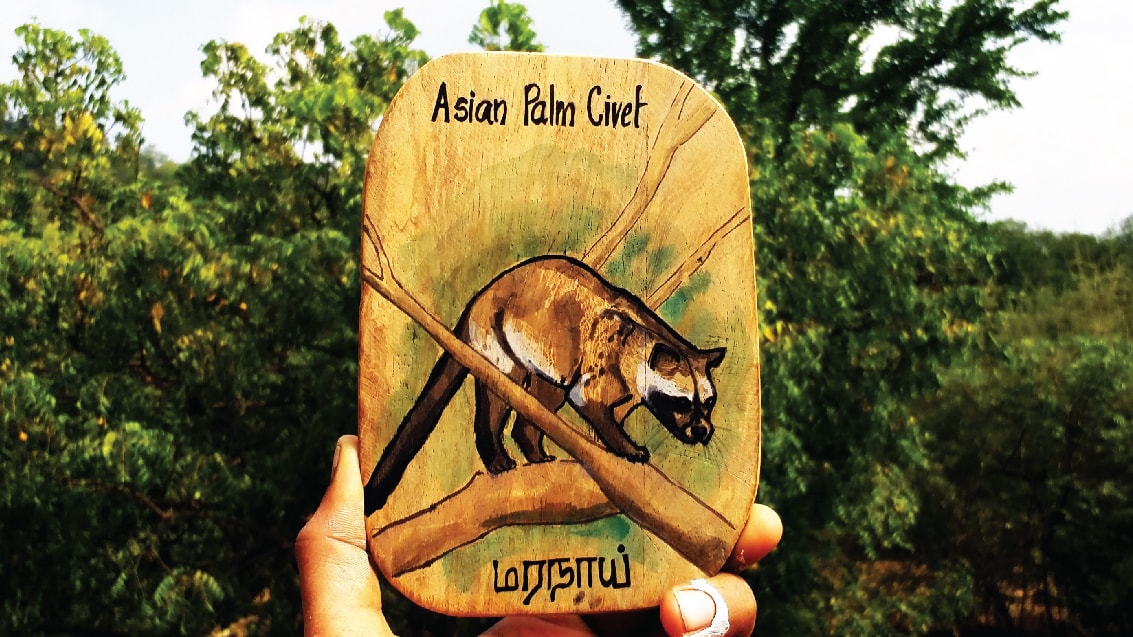 Asian Palm Civet
மரநாய்